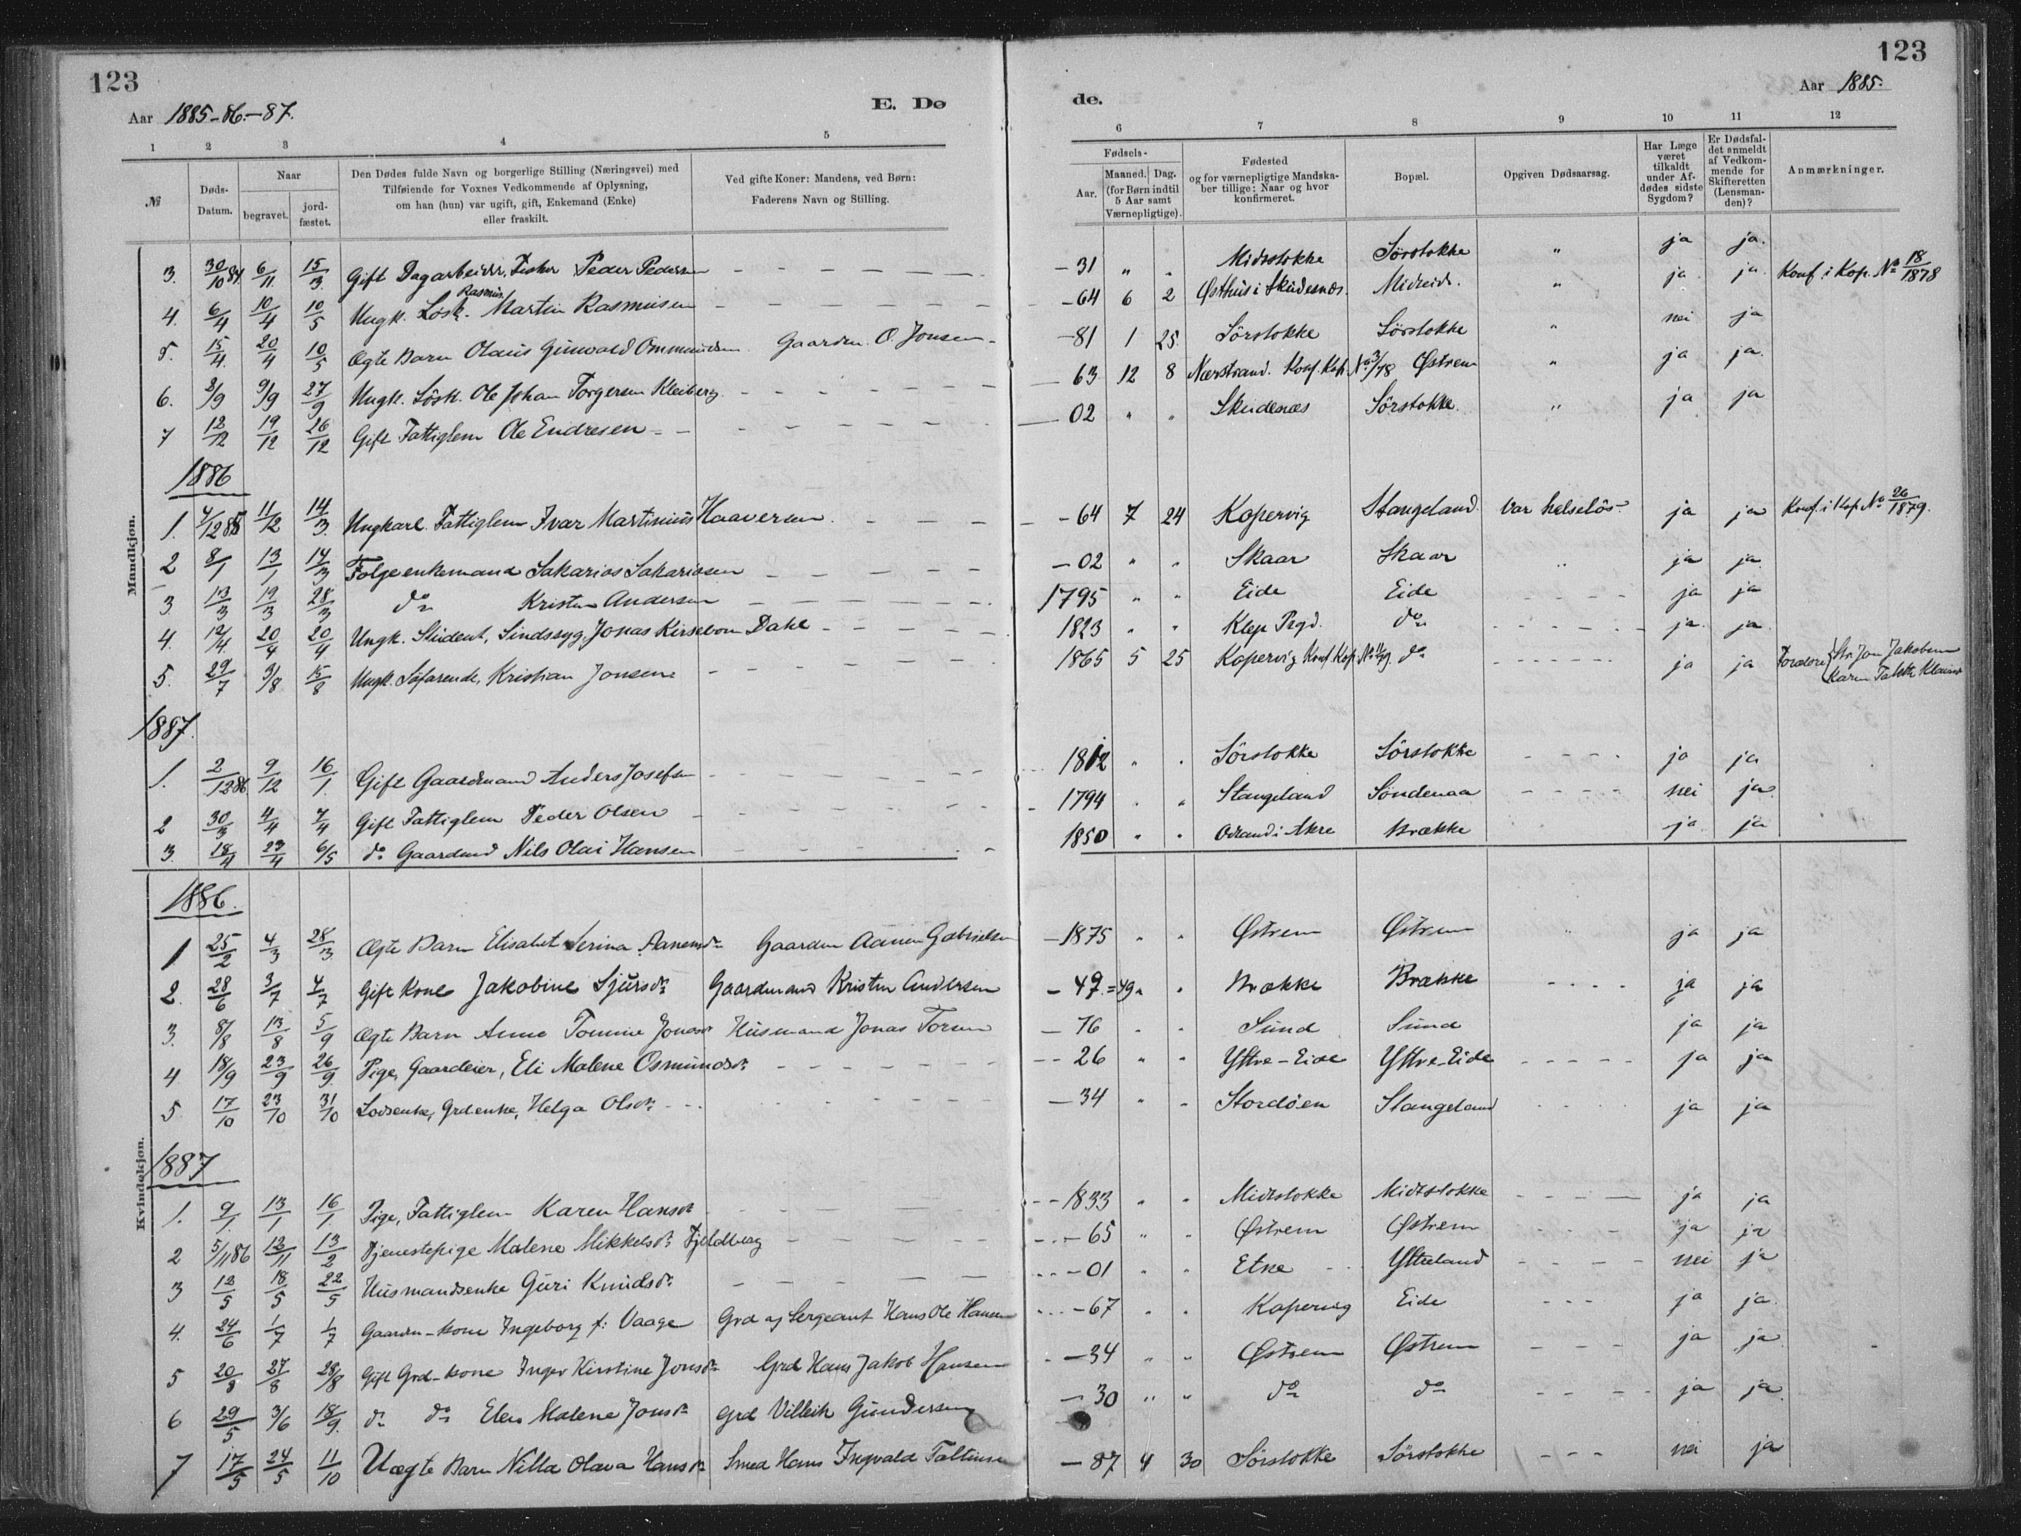 123
123
Aar 1885-86.-87.
E. Dø
de.
Aar 1885.
1 2 3 4 5 6 7 8 9 10 11 12
№
Døds-Datum.
Naar
begravet.
jord-fæstet.
Den Dødes fulde Navn og borgerlige Stilling (Næringsvei) med
Tilføiende for Voxnes Vedkommende af Oplysning,
om han (hun) var ugift, gift, Enkemand (Enke)
eller fraskilt.
Ved gifte Koner: Mandens, ved Børn:
Faderens Navn og Stilling.
Fødsels-
Aar.
Maaned. Dag.
(for Børn indtil
5 Aar samt
Værnepligtige).
Fødested
og for værnepligtige Mandska-
ber tillige: Naar og hvor
konfirmeret.
Bopæl.
Opgiven Dødsaarsag.
Har Læge
været
tilkaldt
under Af-
dødes sidste
Sygdom?
Er Dødsfal-
det anmeldt
af Vedkom-
mende for
Skifteretten
(Lensman-
den)?
Anmærkninger.
Mandkjøn.
3. 30/10 84 6/11 15/3 Gift Dagarbeider, Fisker Peder Pedersen — 31 " " Midtstokke Sörstokke " ja ja.
4. 6/4 10/4 10/5 Ungk. Lösk. Rasmus Martin Rasmusen — 64 6 2 Østhus i Skudesnæs. Midreid. " ja ja Konf. i Kop. № 18/1878
5. 15/4 20/4 10/5 Ægte Barn Olaus Gunvald Ommundsen Gaardm. O. Jonsen — 81 1 25. Sörstokke Sörstokke " nei ja
6. 2/9 9/9 27/9 Ungk. Lösk. Ole Johan Torgersen Kleiberg — 63 12 8 Nærstrand. Konf. Kop. № 3/78 Østrem " ja ja.
7 12/12 19/12 26/12 Gift Fattiglem Ole Endresen — 02 " " Skudenæs Sörstokke. " ja ja
1886
1. 4/12 85 11/12 14/3 Ungkarl. Fattiglem Ivar Martinius Haaversen — 64 7 24 Kopervig Stangeland var helselös ja ja Konf. i Kop. № 26/1879.
2 8/1 13/1 14/3 Folgeenkemand Sakarias Sakariasen — 02 " " Skaar Skaar ja ja
3 13/3 19/3 28/3 do Kristen Andersen 1795 " " Eide Eide ja ja
4. 12/4 20/4 20/4 Ungk. Student, Sindssyg, Jonas Kirsebom Dahl 1823 " " Klep Prgd. do ja ja
5. 29/7 3/8 15/8 Ungk. Söfarende, Kristian Jonsen 1865 5 25 Kopervig Konf. Kop. do ja ja Forældre Jon Jakobsen
Karen
1887.
1. 2/12 86 9/12 16/1 Gift Gaardmand Anders Josefsen 1812 " " Sörstokke Sörstokke ja ja
2 30/3 4/4 4/4 Gift Fattiglem Peder Olsen 1794 " " Stangeland Söndenaa nei ja
3. 18/4 23/4 6/5 do Gaardmd Nils Olai Hansen 1850 " " Odland i Akre Brække ja ja
Kvindekjøn.
1886.
1 25/2 4/3 28/3 Ægte Barn Elisabet Serina Aanensdr Gaardm Aanen Gabrielsen — 1875 " " Østrem Østrem ja ja
2. 28/6 3/7 4/7 Gift Kone Jakobine Sjursdr Gaardmand Kristen Andersen — 49. = 49 " " Brække Brække ja ja
3. 8/8 13/8 5/9 Ægte Barn Anne Tomine Jonasdr Husmand Jonas Torsen — 76 " " Sund Sund ja ja
4 18/9 23/9 26/9 Pige, Gaardeier, Eli Malene Osmundsdr — 26 " " Yttre-Eide Yttre-Eide ja ja
5. 17/10 23/10 31/10 Lodsenke, Grdenke, Helga Olsdr — 34 " " Stordöen Stangeland ja ja
1887
1. 9/1. 13/1 16/1 Pige, Fattiglem Karen Hansdr 1833 " " Midtstokke Midtstokke ja ja
2 5/11 86 12/11 13/2 Tjenestepige Malene Mikkelsdr Fjeldberg — 65 " " Østrem Østrem ja ja
3 12/5 18/5 22/5 Husmandsenke Guri Knudsdr — 01 " " Etne Ytteland nei ja
4. 24/6 1/7 1/7 Gaardm-kone Ingeborg f: Vaage Grd og Sergeant Hans Ole Hansen — 67 " " Kopervig Eide ja ja.
5 20/8 27/8 28/8 Gift Grd-kone Inger Kirstine Jonsdr Grd Hans Jakob Hansen — 34 " " Østrem Østrem ja ja
6 29/5 3/6 18/9. do do Elen Malene Jonsdr Grd Villeik Gundersen — 30 " " do do ja ja
7 17/5 24/5 11/10 Uægte Barn Nilla Olava Hansdr Smed Hans Ingvald — 87 4 30 Sörstokke Sörstokke nei ja